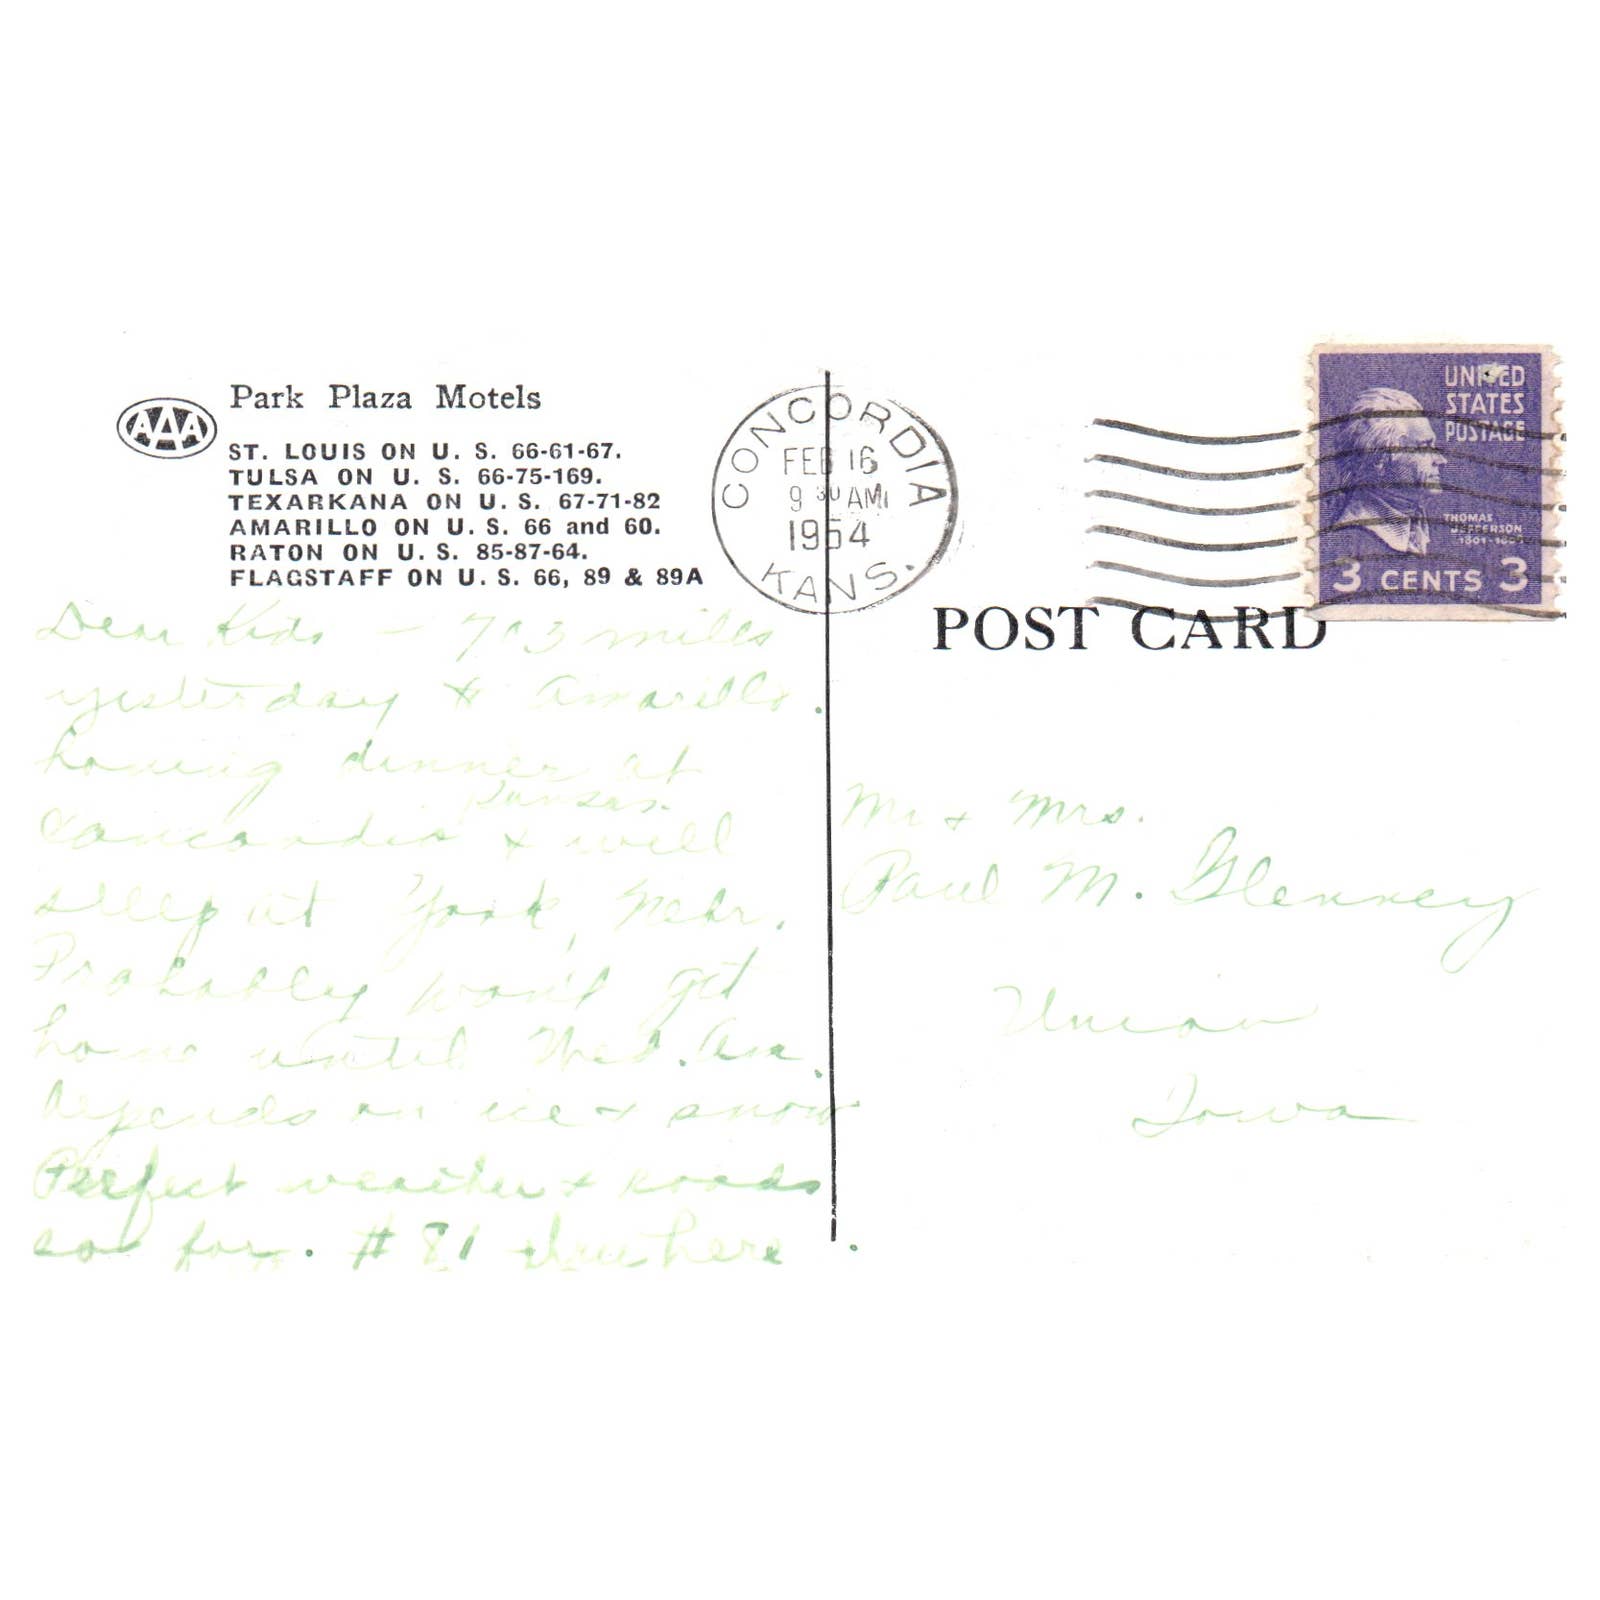 Park Plaza Motels
AAA
ST. LOUIS ON U. S. 66-61-67.
TULSA ON U. S. 66-75-169.
TEXARKANA ON U. S. 67-71-82
AMARILLO ON U. S. 66 and 60.
RATON ON U. S. 85-87-64.
FLAGSTAFF ON U. S. 66, 89 & 89A
Dear Kids - 703 miles
yesterday to Amarillo.
having dinner at
Kansas.
Concordia & will
sleep at York, Nebr.
Probably won't get
home until Wed. Am.
depends on ice & snow
Perfect weather & roads
so far. # 81 thru here.
CONCORDIA
FEB 16
9 30 AM
1954
KANS.
UNITED
STATES
POSTAGE
THOMAS
JEFFERSON
3 CENTS 3
POST CARD
Mr & Mrs.
Paul M. Glenney
Union
Iowa